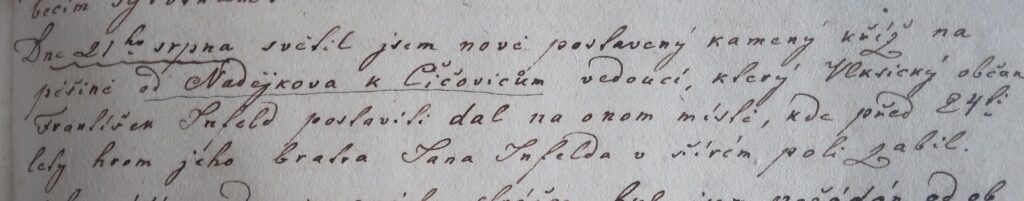 Dne 21ho srpna světil jsem nově postavený kamený kříž na
pěšině od Nadějkova k Čičovicům vedoucí, který Vlksický občan
František Infeld postaviti dal na onom místě, kde před 24ti
lety hrom jého bratra Jana Infelda v šírém poli zabil.